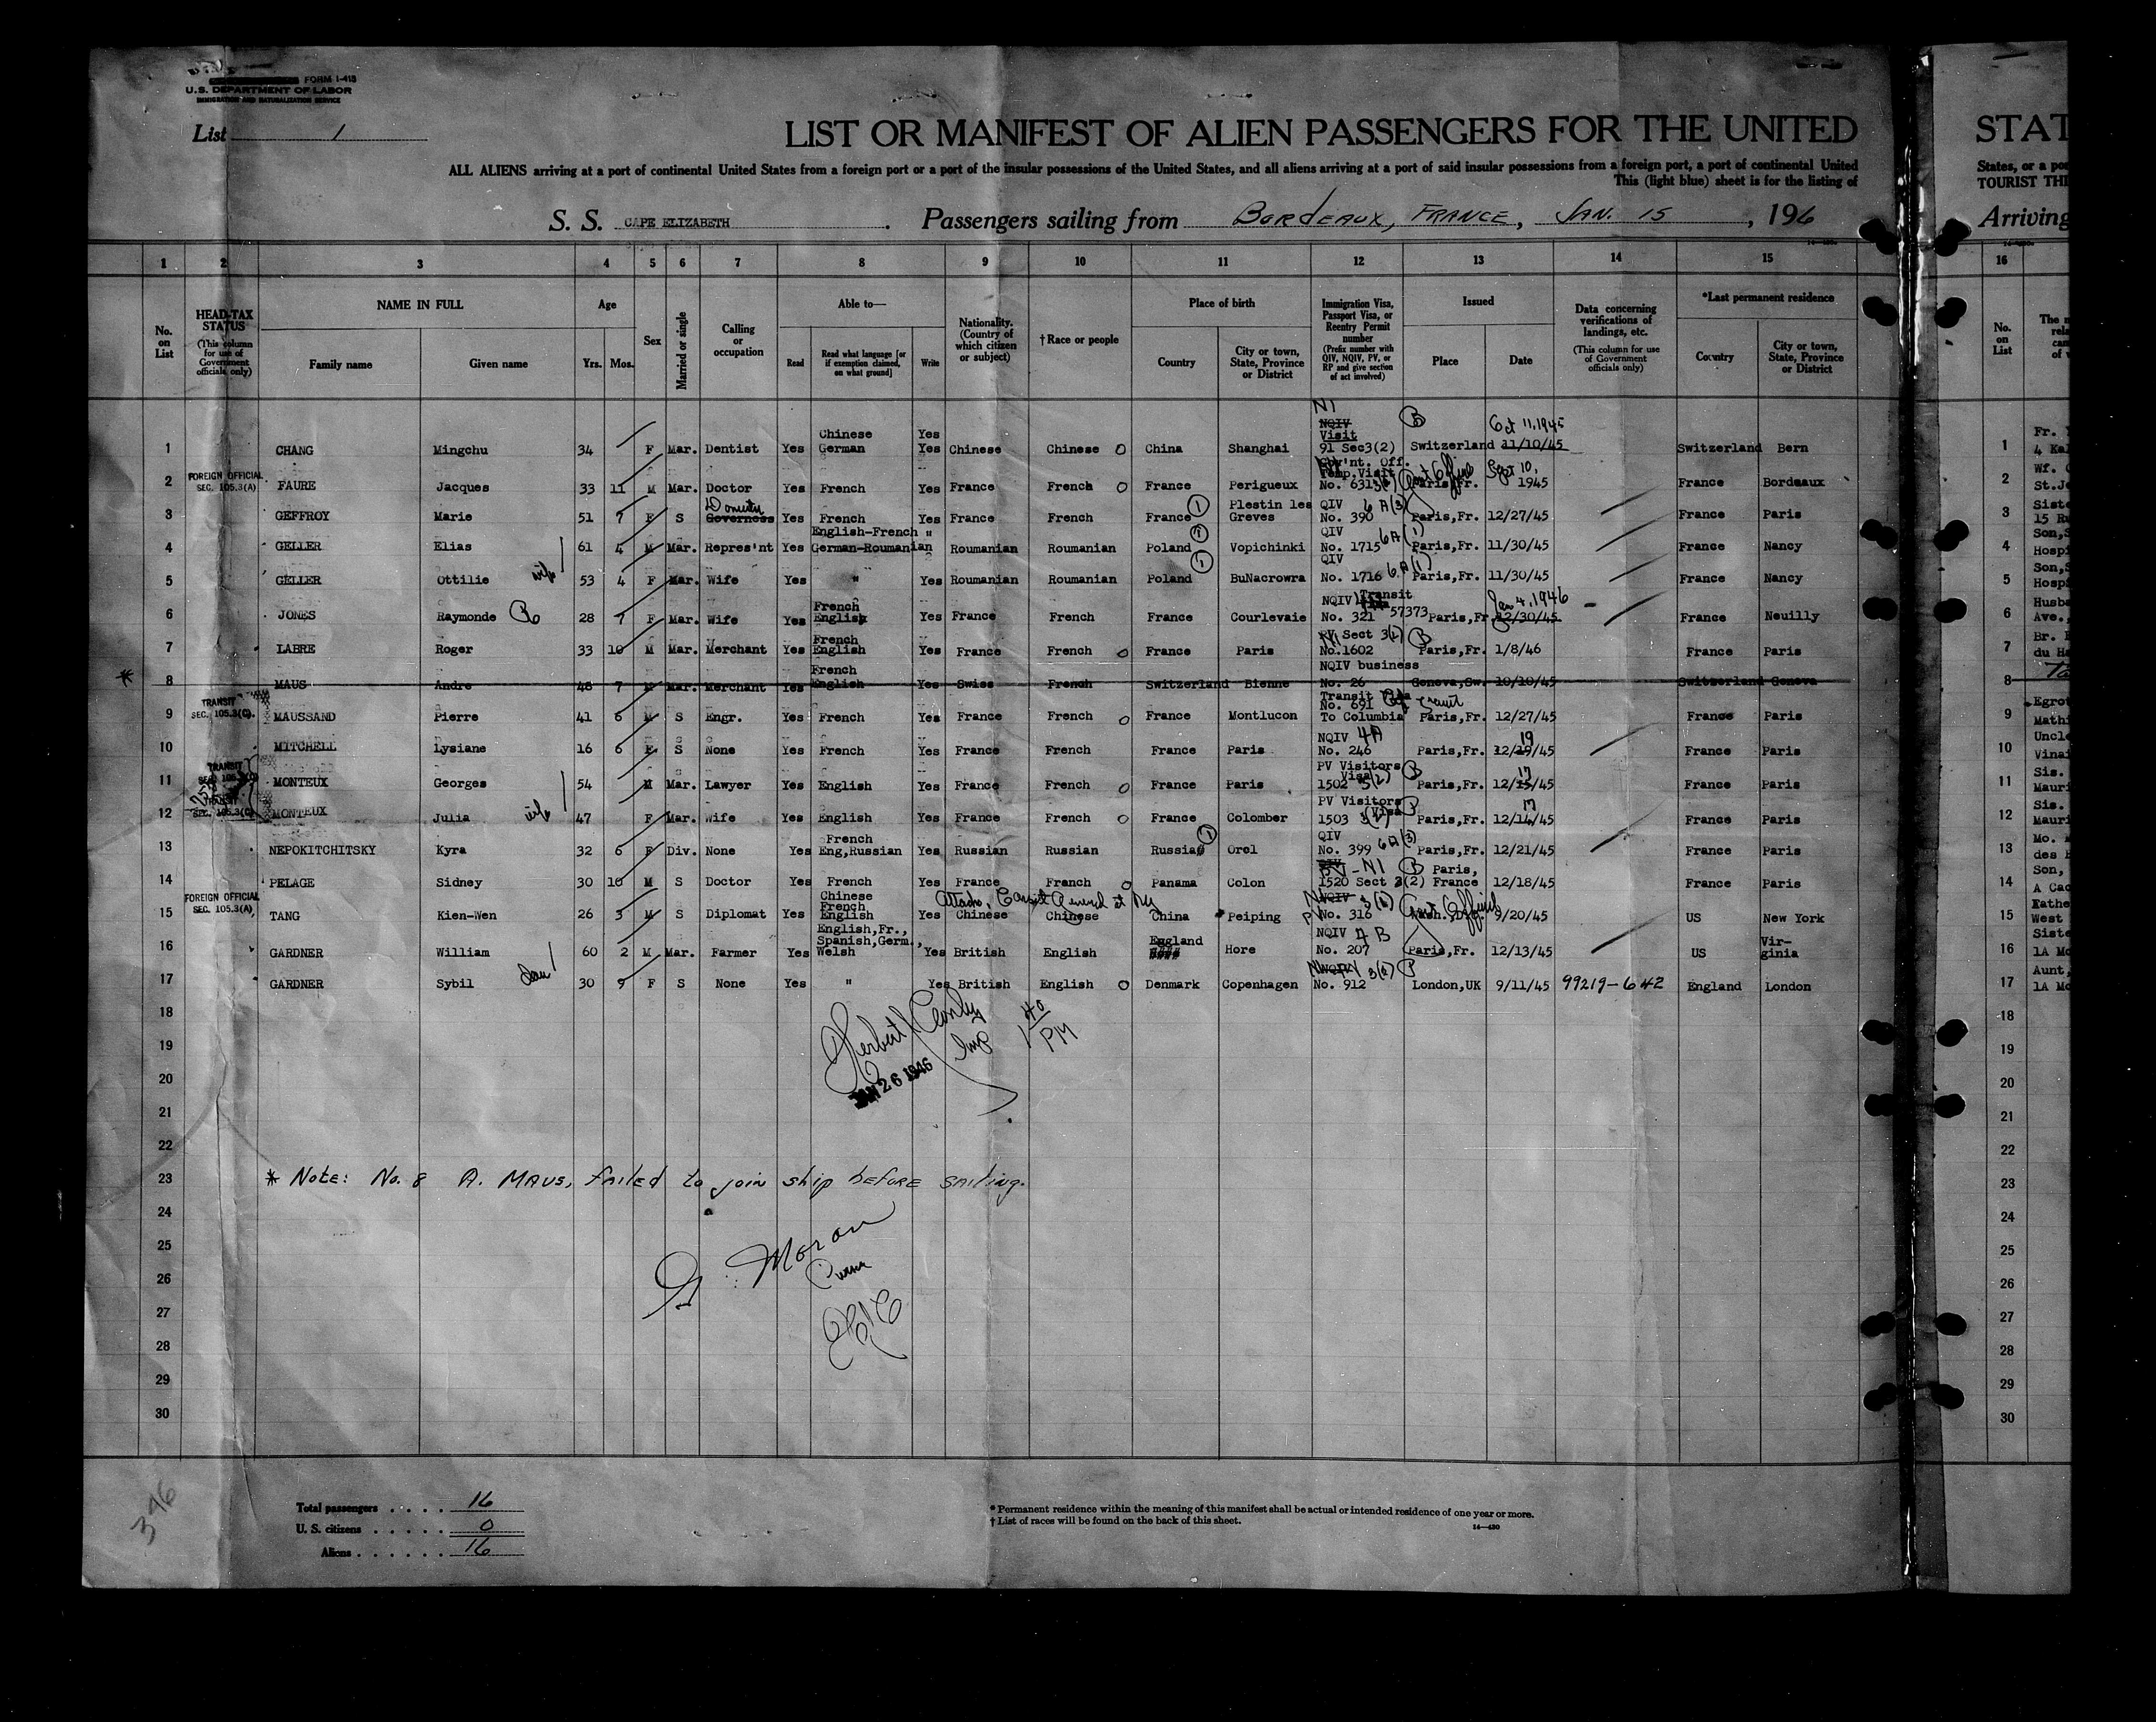 FORM I-413
U.S. DEPARTMENT OF LABOR
IMMIGRATION AND NATURALIZATION SERVICE
List 1
LIST OR MANIFEST OF ALIEN PASSENGERS FOR THE UNITED
STAT
ALL ALIENS arriving at a port of continental United States from a foreign port or a port of the insular possessions of the United States, and all aliens arriving at a port of said insular possessions from a foreign port, a port of continental United
States, or a por
This (light blue) sheet is for the listing of
TOURIST THI
S. S. CAPE ELIZABETH. Passengers sailing from BORDEAUX, FRANCE, JAN. 15, 196
Arriving
1 2 3 4 5 6 7 8 9 10 11 12 13 14 15 16
No. on List
HEAD-TAX STATUS (This column for use of Government officials only)
NAME IN FULL
Family name Given name
Age
Yrs. Mos.
Sex
Married or single
Calling or occupation
Able to—
Read Read what language [or if exemption claimed, on what ground] Write
Nationality. (Country of which citizen or subject)
† Race or people
Place of birth
Country City or town, State, Province or District
Immigration Visa, Passport Visa, or Reentry Permit number (Prefix number with QIV, NQIV, PV, or RP and give section of act involved)
Issued
Place Date
Data concerning verifications of landings, etc. (This column for use of Government officials only)
*Last permanent residence
Country City or town, State, Province or District
No. on List
1 CHANG Mingchu 34 F Mar. Dentist Yes Chinese German Yes Yes Chinese Chinese O China Shanghai NI NQIV Visit 91 Sec3(2) B Switzerland Oct 11, 1945 11/10/45 Switzerland Bern 1
FOREIGN OFFICIAL SEC. 105.3(A)
2 FAURE Jacques 33 11 M Mar. Doctor Yes French Yes France French O France Perigueux Gov'nt. Off. Temp.Visit No. 631 Paris,Fr. Sept 10, 1945 France Bordeaux 2
3 GEFFROY Marie 51 7 F S Governess Yes French Yes France French France 1 Plestin les Greves QIV 6 A(3) No. 390 Paris,Fr. 12/27/45 France Paris 3
4 GELLER Elias 61 4 M Mar. Repres'nt Yes English-French German-Roumanian " Roumanian Roumanian Poland 1 Vopichinki QIV No. 1715 6A(1) Paris,Fr. 11/30/45 France Nancy 4
5 GELLER Ottilie wife 53 4 F Mar. Wife Yes " Yes Roumanian Roumanian Poland 1 BuNacrowra QIV No. 1716 6A(1) Paris,Fr. 11/30/45 France Nancy 5
6 JONES Raymonde 28 7 F Mar. Wife Yes French English Yes France French France Courlevaie NQIV Transit No. 321 57373 Paris,Fr. Jan 4, 1946 12/30/45 France Neuilly 6
7 LABRE Roger 33 10 M Mar. Merchant Yes French English Yes France French O France Paris PV Sect 3(2) No.1602 B Paris,Fr. 1/8/46 France Paris 7
* 8 MAUS Andre 48 7 M Mar. Merchant Yes French English Yes Swiss French Switzerland Bienne NQIV business No. 26 Geneva,Sw. 10/10/45 Switzerland Geneva 8
TRANSIT SEC. 105.3(C).
9 MAUSSAND Pierre 41 6 M S Engr. Yes French Yes France French O France Montlucon Transit No. 691 To Columbia Paris,Fr. 12/27/45 France Paris 9
10 MITCHELL Lysiane 16 6 F S None Yes French Yes France French France Paris NQIV 4A No. 246 Paris,Fr. 19 12/29/45 France Paris 10
TRANSIT
11 MONTEUX Georges 54 M Mar. Lawyer Yes English Yes France French O France Paris PV Visitors Visa 1502 3(2) B Paris,Fr. 17 12/15/45 France Paris 11
TRANSIT SEC. 105.3(C)
12 MONTEUX Julia wife 47 F Mar. Wife Yes English Yes France French O France Colomber PV Visitors Visa 1503 Paris,Fr. 17 12/14/45 France Paris 12
13 NEPOKITCHITSKY Kyra 32 6 F Div. None Yes French Eng,Russian Yes Russian Russian Russia 1 Orel QIV No. 399 6A(3) Paris,Fr. 12/21/45 France Paris 13
14 PELAGE Sidney 30 10 M S Doctor Yes French Yes France French O Panama Colon NI B 1520 Sect 3(2) Paris, France 12/18/45 France Paris 14
FOREIGN OFFICIAL SEC. 105.3(A)
15 TANG Kien-Wen 26 3 M S Diplomat Yes Chinese French English Yes Chinese Chinese China Peiping NQIV No. 316 9/20/45 US New York 15
16 GARDNER William 60 2 M Mar. Farmer Yes English,Fr., Spanish,Germ., Welsh Yes British English England Hore NQIV 4B No. 207 Paris,Fr. 12/13/45 US Virginia 16
17 GARDNER Sybil dau 30 9 F S None Yes " Yes British English O Denmark Copenhagen 3(2) No. 912 London,UK 9/11/45 99219-642 England London 17
18 18
19 19
20 20
21 21
22 22
23 23
24 24
25 25
26 26
27 27
28 28
29 29
30 30
JAN 26 1946
1 40 PM
* Note: No. 8 A. MAUS, failed to join ship before sailing.
Moran
396
Total passengers . . . . 16
U. S. citizens . . . . . 0
Aliens . . . . . . 16
* Permanent residence within the meaning of this manifest shall be actual or intended residence of one year or more.
† List of races will be found on the back of this sheet.
14—430